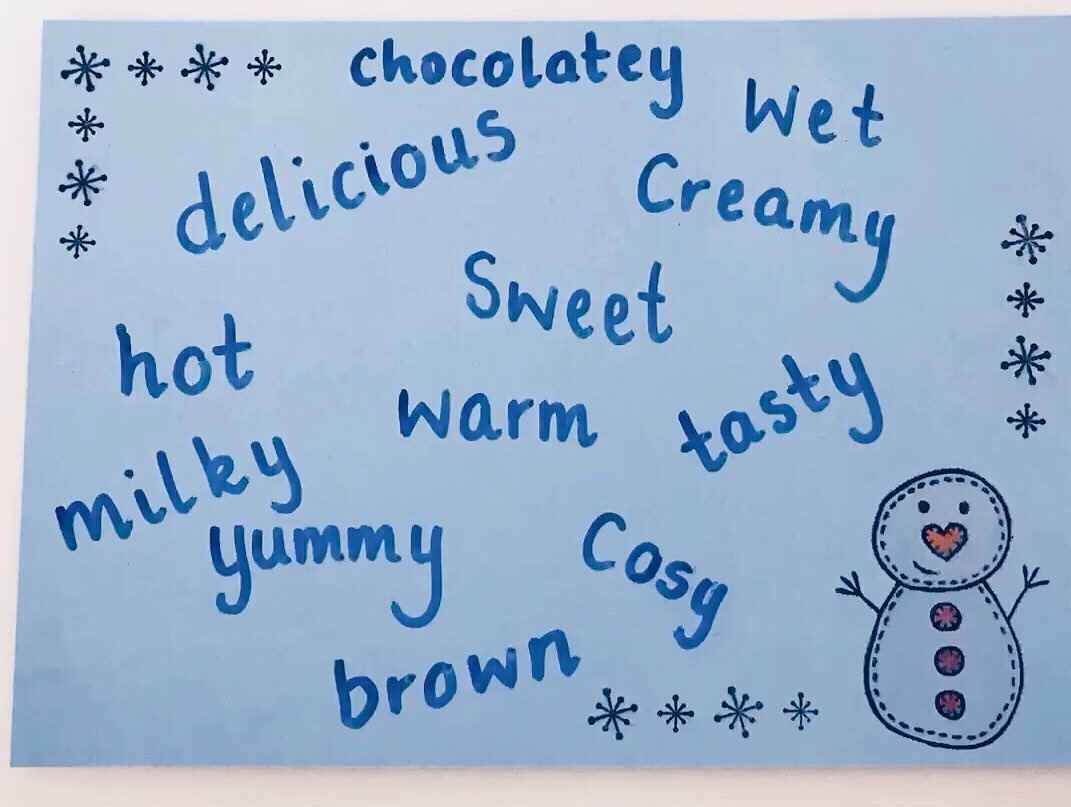 chocolatey
Wet
delicious
Creamy
Sweet
hot
warm
tasty
milky
yummy
Cosy
brown